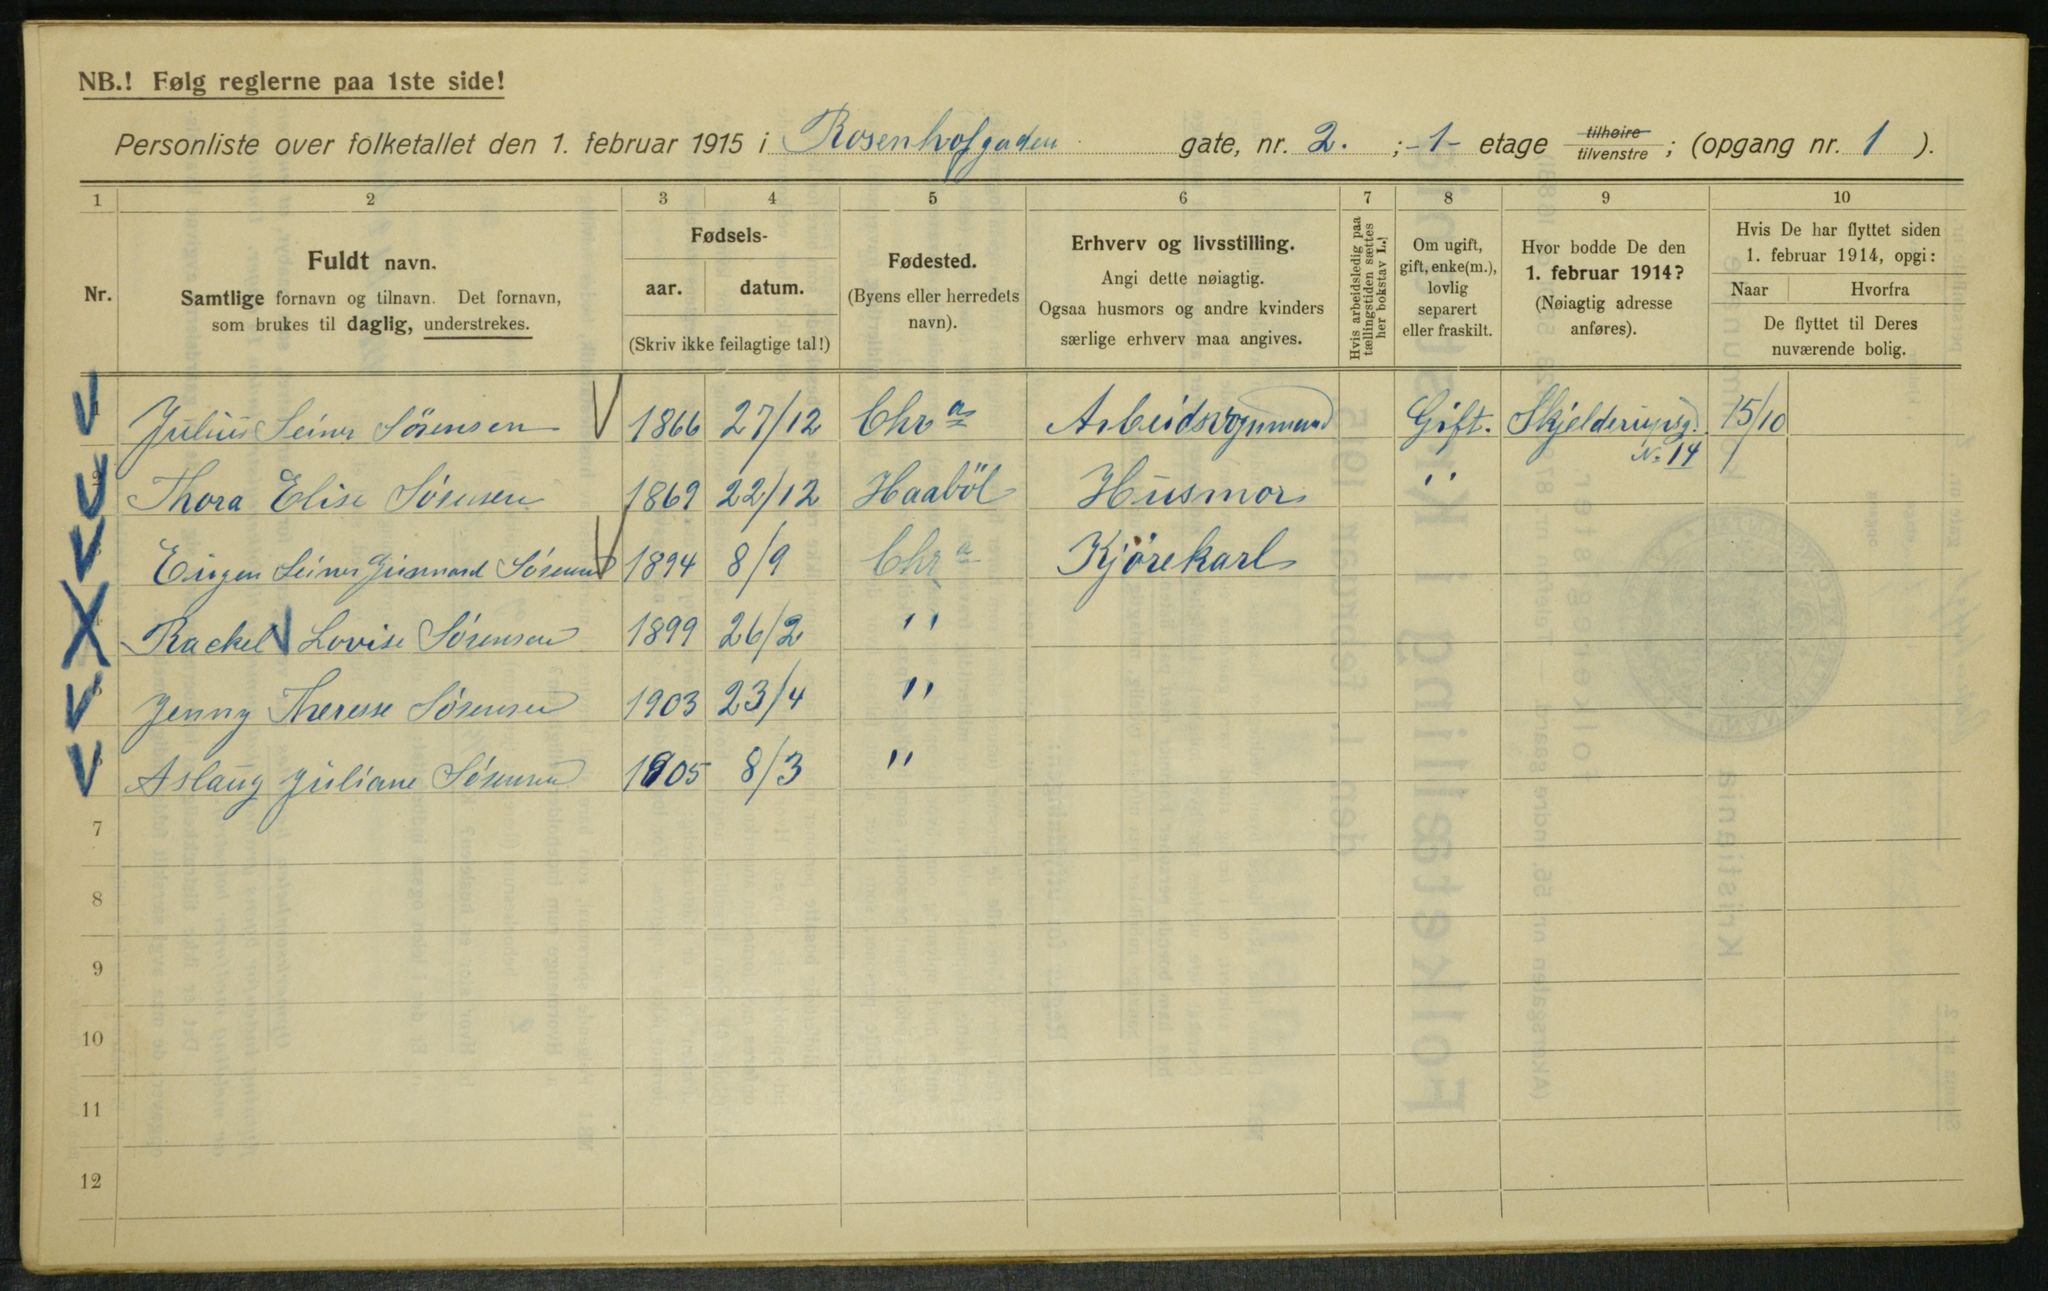 NB.! Følg reglerne paa 1ste side!
Personliste over folketallet den 1. februar 1915 i Rosenhofgaden gate, nr. 2. ; -1- etage tilhøire tilvenstre ; (opgang nr. 1 ).
1 2 3 4 5 6 7 8 9 10
Nr.
Fuldt navn.
Samtlige fornavn og tilnavn. Det fornavn,
som brukes til daglig, understrekes.
Fødsels-
aar. datum.
(Skriv ikke feilagtige tal!)
Fødested.
(Byens eller herredets
navn).
Erhverv og livsstilling.
Angi dette nøiagtig.
Ogsaa husmors og andre kvinders
særlige erhverv maa angives.
Hvis arbeidsledig paa
tællingstiden sættes
her bokstav L.!
Om ugift,
gift, enke(m.),
lovlig
separert
eller fraskilt.
Hvor bodde De den
1. februar 1914?
(Nøiagtig adresse
anføres).
Hvis De har flyttet siden
1. februar 1914, opgi:
Naar Hvorfra
De flyttet til Deres
nuværende bolig.
1 Julius Seiner Sörensen 1866 27/12 Chr a Arbeidsvognmand Gift. Skjelderupsg. 15/10
No 14
2 Thora Elise Sørensen 1869 22/12 Haaböl Husmor "
3 Eugen Seiner Sørensen 1894 8/9 Chr a Kjørekarl
4 Rackel Lovise Sørensen 1899 26/2 "
5 Jenny Therese Sørensen 1903 23/4 "
6 Aslaug Juliane Sørensen 1905 8/3 "
7
8
9
10
11
12